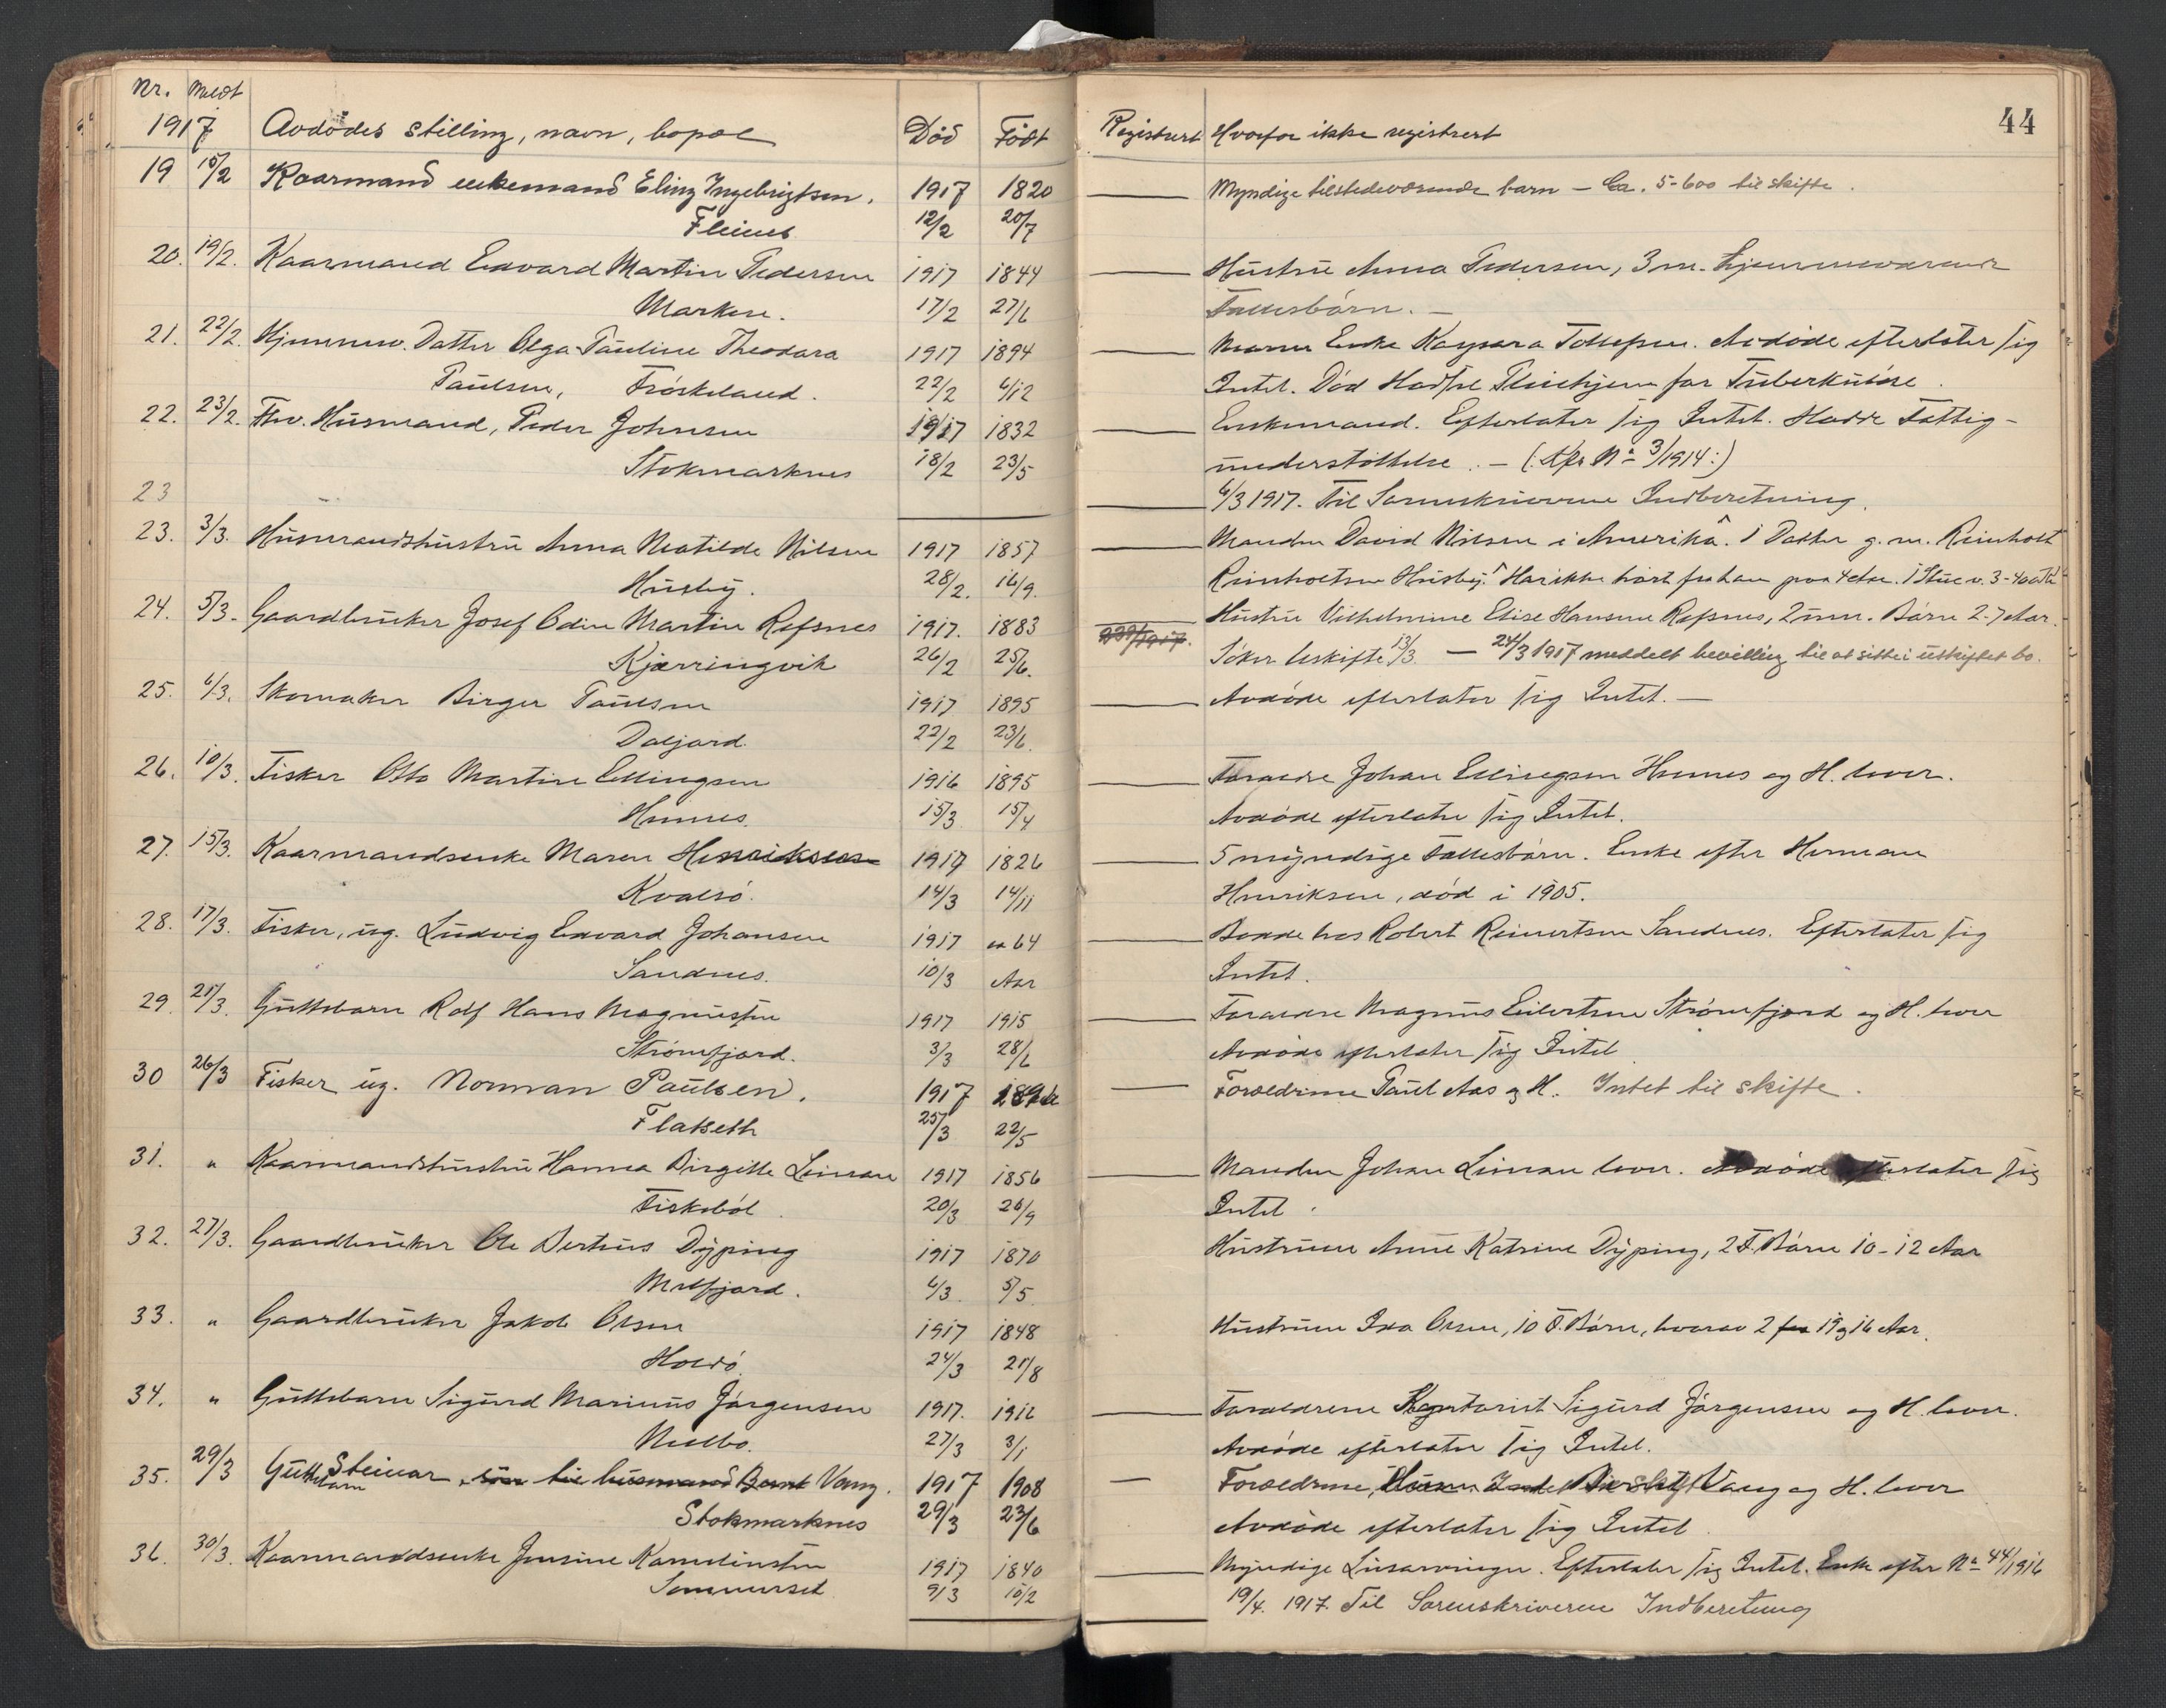 Nr. Meldt
1917 Avdödes stilling, navn, bopæl Död Födt
19 15/2 Kaarmand enkemand Eling Ingebrigtsen. 1917 1820
Fleines 12/2 20/7
20. 19/2. Kaarmand Edvard Martin Pedersen 1917 1844
Marken. 17/2 27/6
21. 22/2. Hjemmev. Datter Olga Pauline Theodora 1917 1894
Paulsen, Fröskeland. 22/2 6/12
22. 23/2. Fhv. Husmand, Peder Johnsen 1917 1832
Stokmarknes 18/2 23/5
23
23. 3/3. Husmandshustru Anna Matilde Nilsen 1917 1857
Husby. 28/2. 16/9.
24. 5/3. Gaardbruker Josef Odin Martin Refsnes 1917. 1883
Kjærringvik 26/2 25/6.
25. 6/3. Skomaker Birger Paulsen 1917 1895
Daljord 22/2 23/6.
26. 10/3. Fisker Otto Martin Ellingsen 1916 1895
Hennes. 15/3 15/4
27. 15/3. Kaarmandsenke Maren Henriksen 1917 1826
Kvalsö. 14/3 14/11
28. 17/3. Fisker, ug. Ludvig Edvard Johansen 1917 ca 64
Sandnes. 10/3 Aar
29. 21/3. Guttebarn Rolf Hans Magnussen 1917 1915
Strömfjord. 3/3 28/6
30 26/3 Fisker ug. Norman Paulsen. 1917
Flatseth 25/3 22/5
31. " Kaarmandshustru Hanna Birgitte Leinan 1917 1856
Fiskeböl. 20/3 26/9
32. 27/3. Gaardbruker Ole Berteus Dyping 1917 1870
Melfjord. 6/3 5/5
33. " Gaardbruker Jakob Olsen 1917 1848
Holdö. 24/3 21/8
34. " Guttebarn Sigurd Marinus Jörgensen 1917. 1916
Melbo. 27/3 3/1
35. 29/3 Guttebarn Steinar, sön til husmand Bernt Vang. 1917 1908
Stokmarknes 29/3 23/6
36. 30/3. Kaarmandsenke Jensine Kornelinssen 1917 1840
Sommerset 9/3 10/2
44
Registrert Hvorfor ikke registrert
Myndige tilstedeværende barn – Ca. 5-600 til skifte.
Hustru Anna Pedersen, 3 m. hjemmeværende
Fællesbörn. –
Moren Enke Kaysara Tollefsen. Avdöde efterlater sig
Intet. Död Hadsel Pleiehjem for Tuberkulöse.
Enkemand. Efterlater sig Intet. Havde Fattig-
understöttelse. – (: No 3/1914 :)
6/3 1917. Til Sorenskriveren Indberetning.
Manden David Nilsen i Amerika. 1 Datter g. m. Reinholt
Reinholtsen Husby. Har ikke hört fra ham paa 4 Aar. 1 Stue v. 3-400
Hustru Vilhelmine Elise Hansen Refsnes, 2 um. Börn 2-7 Aar.
Söker Uskifte 13/3. – 24/3 1917 meddelt bevilling til at sitte i uskiftet bo.
Avdöde efterlater sig Intet. –
Forældre Johan Ellingsen Hennes og H. lever.
Avdöde efterlater sig Intet.
5 myndige Fællesbörn. Enke efter Herman
Henriksen, död i 1905.
Bodde hos Robert Reinertsen Sandnes. Efterlater sig
Intet.
Forældre Magnus Eilertsen Strömfjord og H. lever
Avdöde efterlater sig Intet
Forældrene Paul Aas og H. Intet til skifte.
Manden Johan Leinan lever. Avdöde efterlater sig
Intet.
Hustruen Anne Katrine Dyping, 2 F. Börn 10-12 Aar
Hustruen Ida Olsen, 10 F. Börn, hvorav 2 19 og 16 Aar.
Forældrene Kontorist Sigurd Jörgensen og H. lever.
Avdöde efterlater sig Intet.
Forældrene, Vang og H. lever
Avdöde efterlater sig Intet.
Myndige Livsarvinger. Efterlater sig Intet. Enke efter No 44/1916
19/4. 1917. Til Sorenskriveren Indberetning